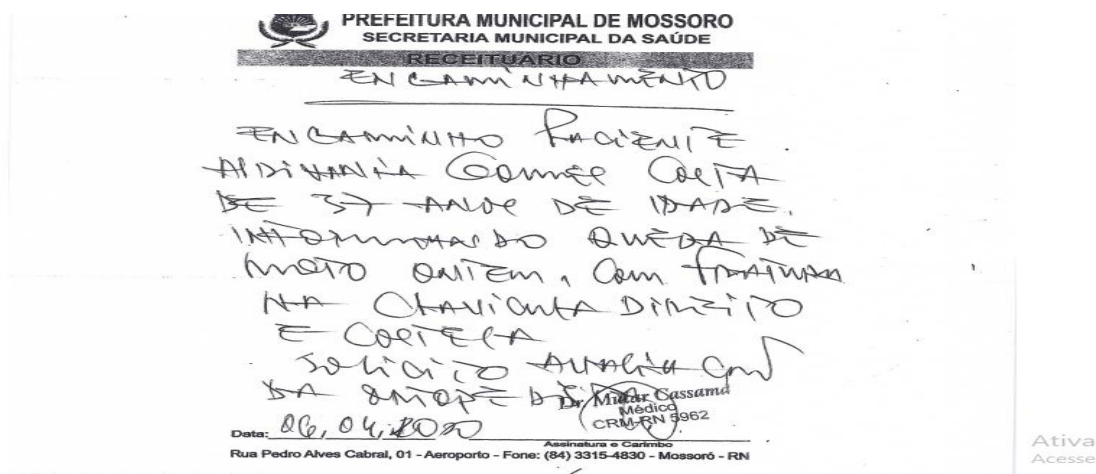 PREFEITURA MUNICIPAL DE MOSSORO
SECRETARIA MUNICIPAL DA SAÚDE
RECEITUÁRIO
ENCAMINHAMENTO
ENCAMINHO PACIENTE
COSTA
DE 37 ANOS DE IDADE.
QUEDA DE
MOTO ONTEM, COM
NA CLAVICULA DIREITO
E COSTELA
SOLICITO
DA
Dr. Cassamá
Médico
CRM-RN 5962
Data: 06, 04, 2020
Assinatura e Carimbo
Rua Pedro Alves Cabral, 01 - Aeroporto - Fone: (84) 3315-4830 - Mossoró - RN
Ativa
Acesse